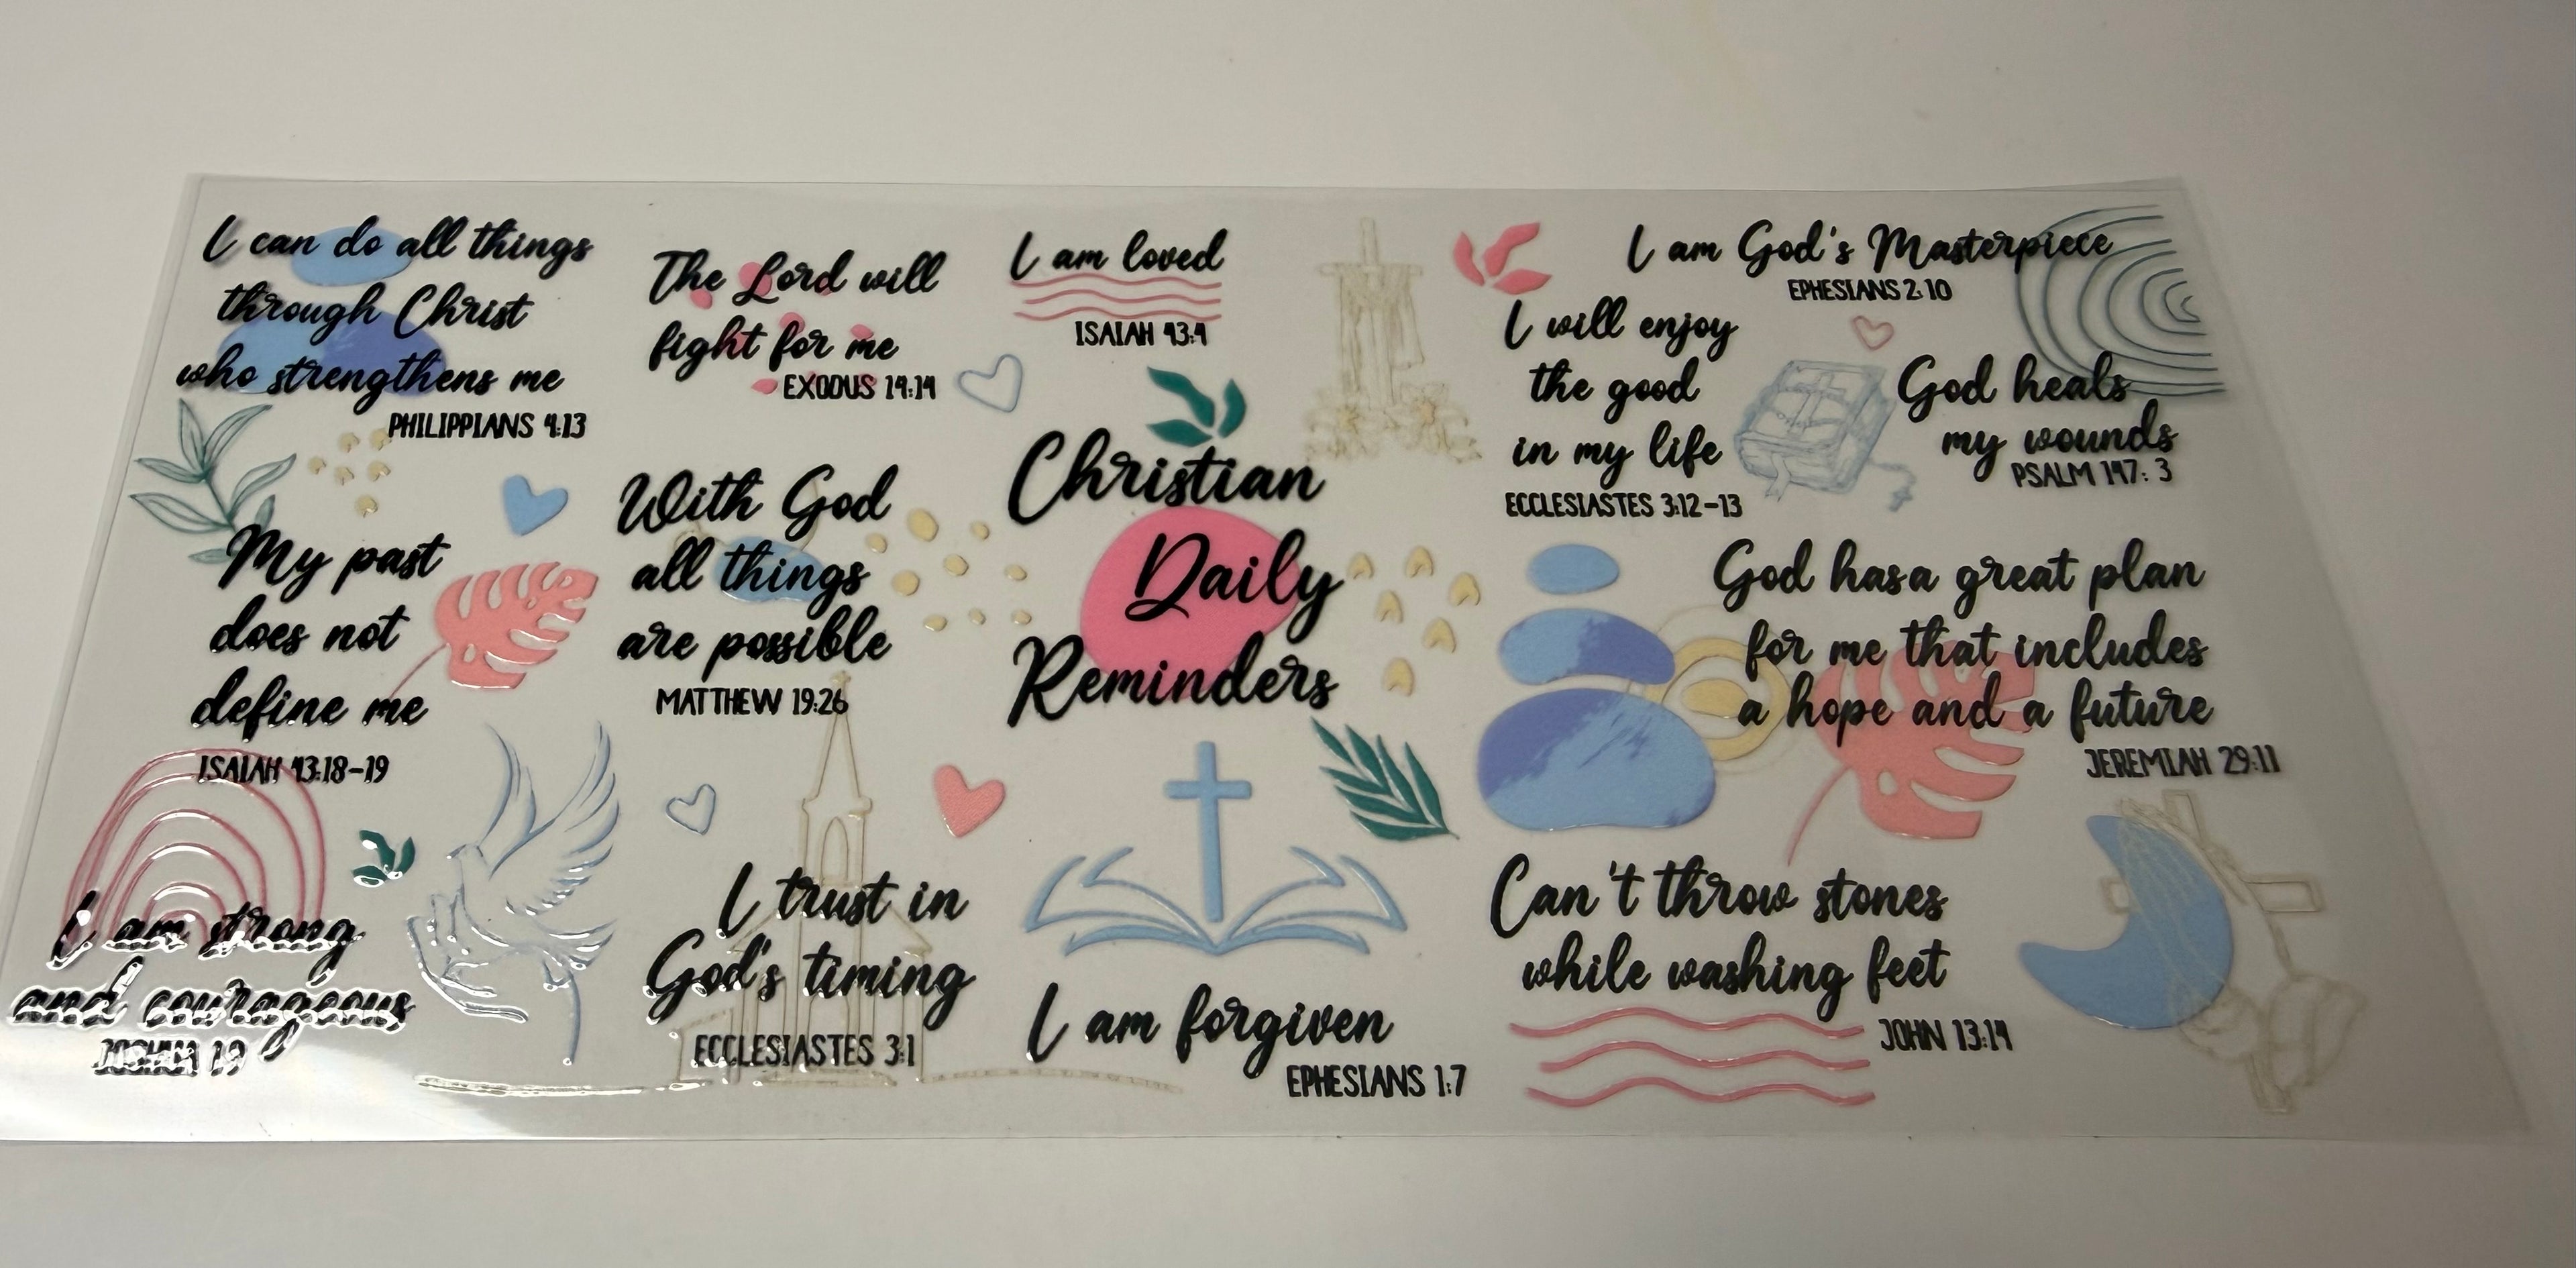 I can do all things
through Christ
who strengthens me
PHILIPPIANS 4:13
The Lord will
fight for me
EXODUS 14:14
I am loved
ISAIAH 43:4
I am God's Masterpiece
EPHESIANS 2:10
I will enjoy
the good
in my life
ECCLESIASTES 3:12-13
God heals
my wounds
PSALM 147: 3
My past
does not
define me
ISAIAH 43:18-19
With God
all things
are possible
MATTHEW 19:26
Christian
Daily
Reminders
God has a great plan
for me that includes
a hope and a future
JEREMIAH 29:11
I am strong
and courageous
JOSHUA 1:9
I trust in
God's timing
ECCLESIASTES 3:1
I am forgiven
EPHESIANS 1:7
Can't throw stones
while washing feet
JOHN 13:14